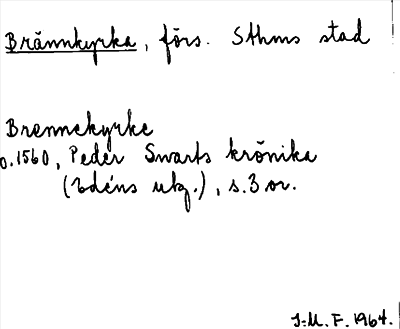 Brännkyrka, förs. Sthms stad
Brennekyrke
o.1560, Peder Swarts krönika
(Edéns utg.), s.3 or.
J.M.F. 1964.